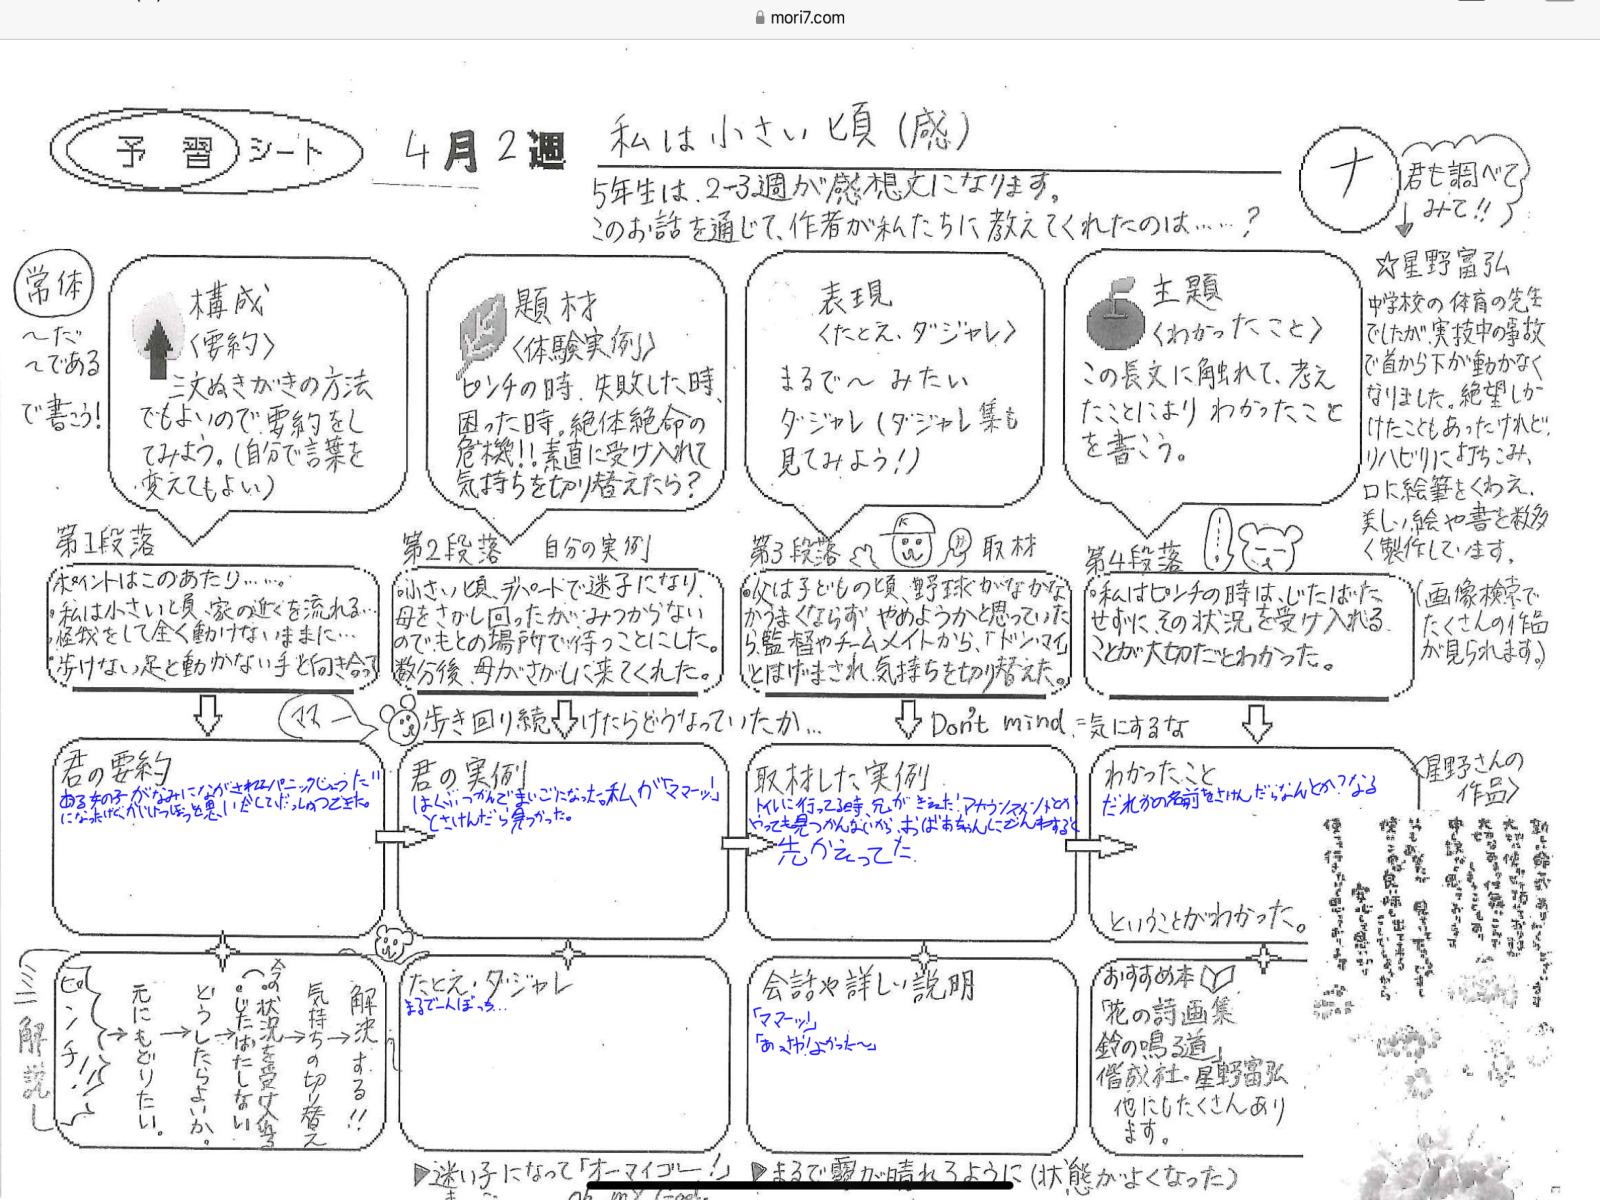 mori7.com
予習シート
4月2週
私は小さい頃(感)
5年生は、2-3週が感想文になります。
このお話を通じて、作者が私たちに教えてくれたのは……?
ナ
君も調べて
みて!!
常体
〜だ
〜である
で書こう!
構成
〈要約〉
三文ぬきがきの方法
でもよいので要約をし
てみよう。(自分で言葉を
変えてもよい)
題材
〈体験実例〉
ピンチの時、失敗した時、
困った時。絶体絶命の
危機!!素直に受け入れて
気持ちを切り替えたら?
表現
〈たとえ、ダジャレ〉
まるで〜みたい
ダジャレ(ダジャレ集も
見てみよう!)
主題
〈わかったこと〉
この長文に触れて、考え
たことにより わかったこと
を書こう。
☆星野富弘
中学校の体育の先生
でしたが、実技中の事故
で首から下が動かなく
なりました。絶望しか
けたこともあったけれど、
リハビリに打ちこみ、
口に絵筆をくわえ、
美しい絵や書を数多
く製作しています。
(画像検索で
たくさんの作品
が見られます。)
第1段落
ポイントはこのあたり……。
・私は小さい頃、家の近くを流れる…
・怪我をして全く動けないままに…
・歩けない足と動かない手と向き合っ
第2段落 自分の実例
・小さい頃、デパートで迷子になり、
母をさがし回ったが、みつからない
のでもとの場所で待つことにした。
数分後、母がさがしに来てくれた。
第3段落 取材
・父は子どもの頃、野球がなかなか
うまくならず やめようかと思っていた
ら、監督やチームメイトから、「ドンマイ」
とはげまされ、気持ちを切り替えた。
第4段落
・私はピンチの時は、じたばた
せずに、その状況を受け入れる
ことが大切だとわかった。
ママー
歩き回り続けたらどうなっていたか…
Don't mind.=気にするな
君の要約
ある女の子がなみにながされる
君の実例
まいごになった。私が「ママーッ」
とさけんだら見つかった。
取材した実例
トイレに行ってる時、
やっても見つかんないから、おばあちゃんにでんわすると
先かえってた
わかったこと
だれかの名前をさけんだらなんとか?なる
ということがわかった。
〈星野さんの
作品〉
ミニ解説
ピンチ!!
→元にもどりたい。
→どうしたらよいか。
→今の状況を受け入れる
(・じたばたしない
→気持ちの切り替え
→解決する!!
たとえ・ダジャレ
まるで一人ぼっち…
会話や詳しい説明
「ママーッ!」
「あっ や!よかった〜」
おすすめ本
「花の詩画集
鈴の鳴る道」
偕成社・星野富弘
他にもたくさんあり
ます。
▶迷い子になって「オーマイゴー!」
▶まるで霧が晴れるように(状態がよくなった)